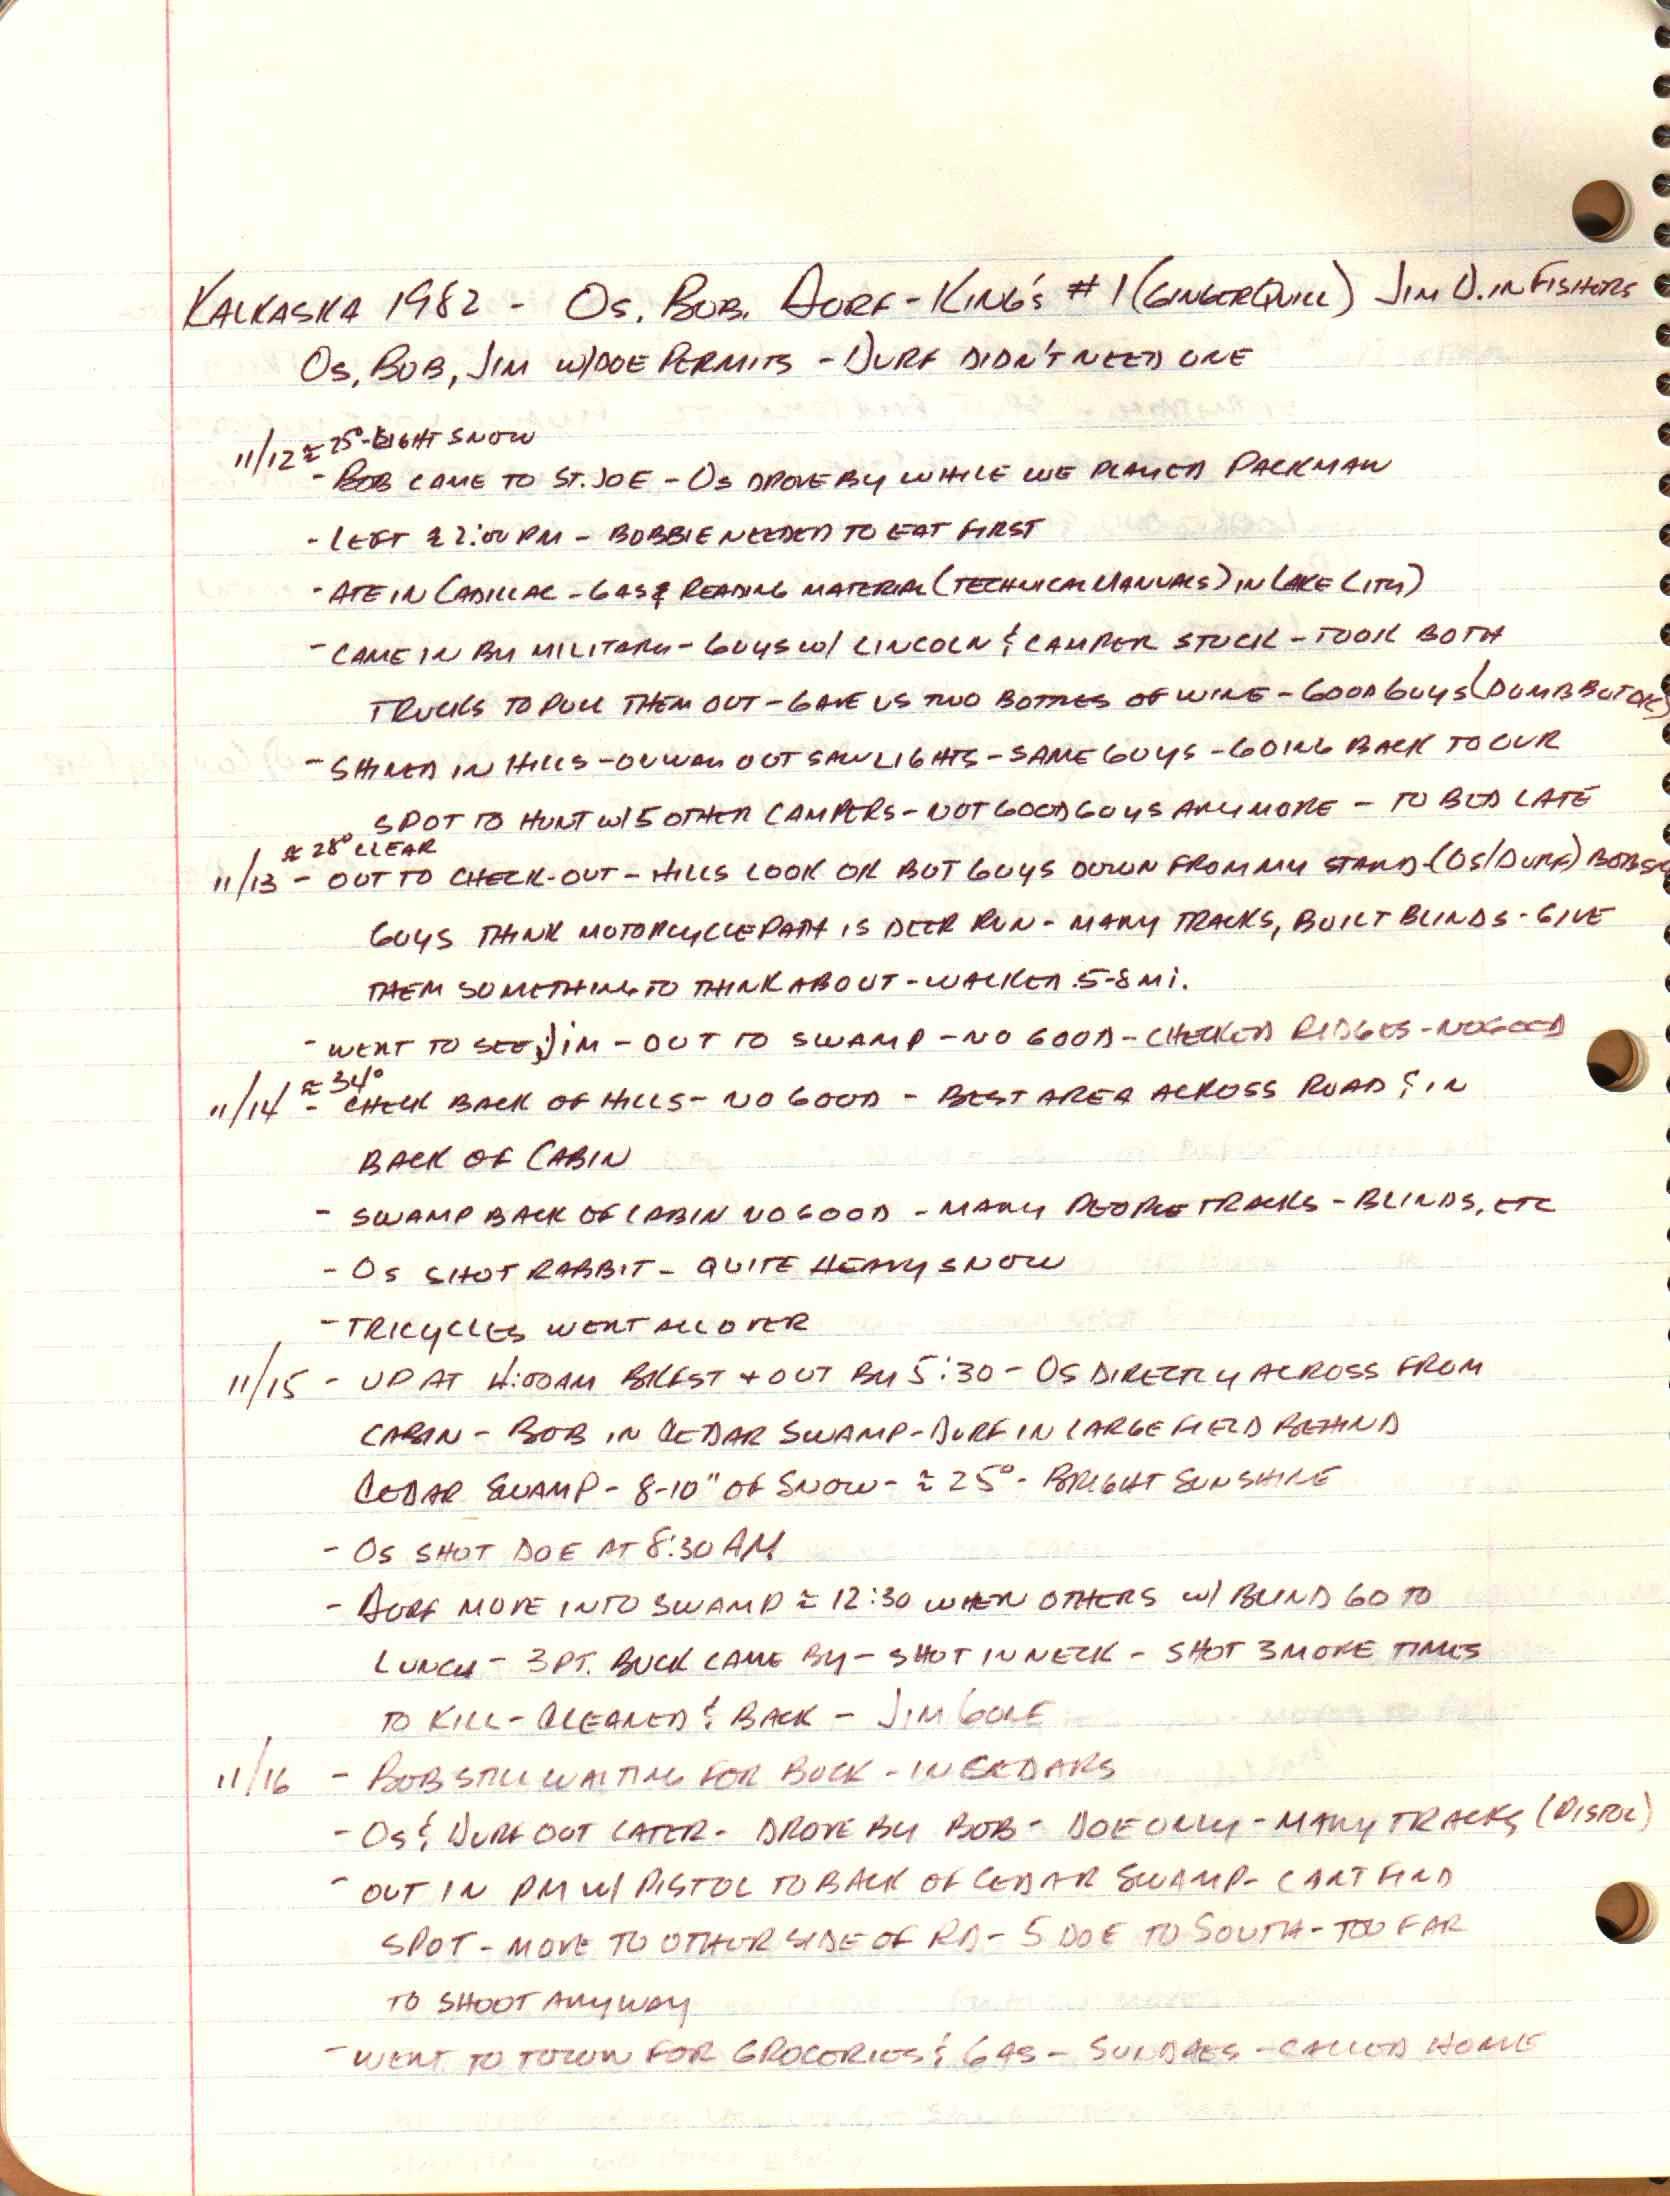 KALKASKA 1982 - OS, BOB, DURF - KING'S #1 (GINGERQUILL) JIM D. IN FISHERS
OS, BOB, JIM W/DOE PERMITS - DURF DIDN'T NEED ONE
11/12 ≈ 25° - LIGHT SNOW
- BOB CAME TO ST. JOE - OS DROVE BY WHILE WE PLAYED PACKMAN
- LEFT ≈ 2:00 PM - BOBBIE NEEDED TO EAT FIRST
- ATE IN CADILLAC - GAS & READING MATERIAL (TECHNICAL MANUALS) IN LAKE CITY)
- CAME IN BY MILITARY - GUYS W/ LINCOLN & CAMPER STUCK - TOOK BOTH
TRUCKS TO PULL THEM OUT - GAVE US TWO BOTTLES OF WINE - GOOD GUYS (DUMB BUT OK)
- SHINED IN HILLS - ON WAY OUT SAW LIGHTS - SAME GUYS - GOING BACK TO OUR
SPOT TO HUNT W/ 5 OTHER CAMPERS - NOT GOOD GUYS ANYMORE - TO BED LATE
≈ 28° CLEAR
11/13 - OUT TO CHECK-OUT - HILLS LOOK OK BUT GUYS DOWN FROM MY STAND - (OS/DURF) BOBS
GUYS THINK MOTORCYCLE PATH IS DEER RUN - MANY TRACKS, BUILT BLINDS - GIVE
THEM SOMETHING TO THINK ABOUT - WALKED 5-8 MI.
- WENT TO SEE JIM - OUT TO SWAMP - NO GOOD - CHECKED RIDGES - NO GOOD
≈ 34°
11/14 - CHECK BACK OF HILLS - NO GOOD - BEST AREA ACROSS ROAD & IN
BACK OF CABIN
- SWAMP BACK OF CABIN NO GOOD - MANY PEOPLE TRACKS - BLINDS, ETC
- OS SHOT RABBIT - QUITE HEAVY SNOW
- TRICYCLES WENT ALL OVER
11/15 - UP AT 4:00AM BRKFST + OUT BY 5:30 - OS DIRECTLY ACROSS FROM
CABIN - BOB IN CEDAR SWAMP - DURF IN LARGE FIELD BEHIND
CEDAR SWAMP - 8-10" OF SNOW - ≈ 25° - BRIGHT SUNSHINE
- OS SHOT DOE AT 8:30 AM
- DURF MOVE INTO SWAMP ≈ 12:30 WHEN OTHERS W/ BLIND GO TO
LUNCH - 3 PT. BUCK CAME BY - SHOT IN NECK - SHOT 3 MORE TIMES
TO KILL - CLEANED & BACK - JIM GONE
11/16 - BOB STILL WAITING FOR BUCK - IN CEDARS
- OS & DURF OUT LATER - DROVE BY BOB - DOE ONLY - MANY TRACKS (PISTOL)
- OUT IN PM W/ PISTOL TO BACK OF CEDAR SWAMP - CANT FIND
SPOT - MOVE TO OTHER SIDE OF RD - 5 DOE TO SOUTH - TOO FAR
TO SHOOT ANYWAY
- WENT TO TOWN FOR GROCERIES & GAS - SUNDAES - CALLED HOME